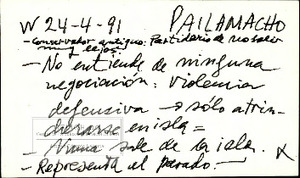 W 24-4-91 PAILAMACHO
- Conservador antiguo: Partidario de no salir
muy lejos.
- No entiende de ninguna
negociación: violencia
defensiva → sólo atrin-
cherarse en isla =
- Nunca sale de la isla.
- Representa el pasado.-